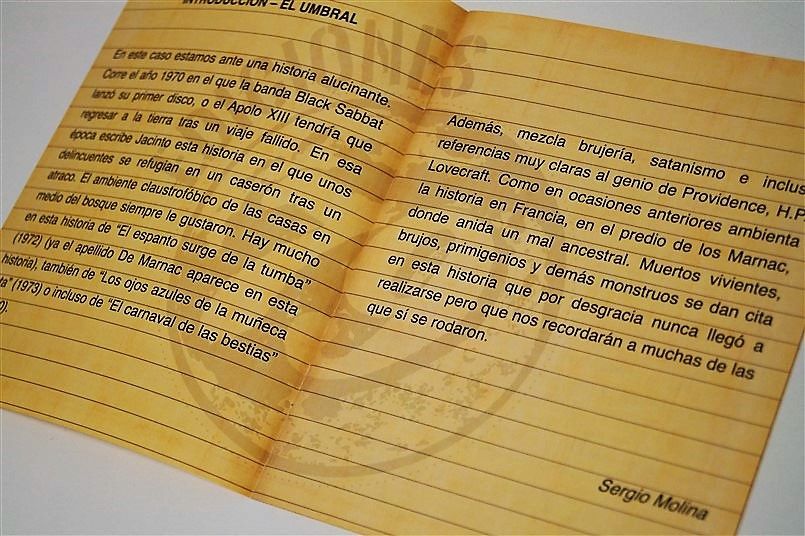 INTRODUCCIÓN – EL UMBRAL
En este caso estamos ante una historia alucinante.
Corre el año 1970 en el que la banda Black Sabbat
lanzó su primer disco, o el Apolo XIII tendría que
regresar a la tierra tras un viaje fallido. En esa
época escribe Jacinto esta historia en el que unos
delincuentes se refugian en un caserón tras un
atraco. El ambiente claustrofóbico de las casas en
medio del bosque siempre le gustaron. Hay mucho
en esta historia de “El espanto surge de la tumba”
(1972) (ya el apellido De Marnac aparece en esta
historia), también de “Los ojos azules de la muñeca
ta” (1973) o incluso de “El carnaval de las bestias”
0).
Además, mezcla brujería, satanismo e inclus
referencias muy claras al genio de Providence, H.P.
Lovecraft. Como en ocasiones anteriores ambienta
la historia en Francia, en el predio de los Marnac,
donde anida un mal ancestral. Muertos vivientes,
brujos, primigenios y demás monstruos se dan cita
en esta historia que por desgracia nunca llegó a
realizarse pero que nos recordarán a muchas de las
que sí se rodaron.
Sergio Molina